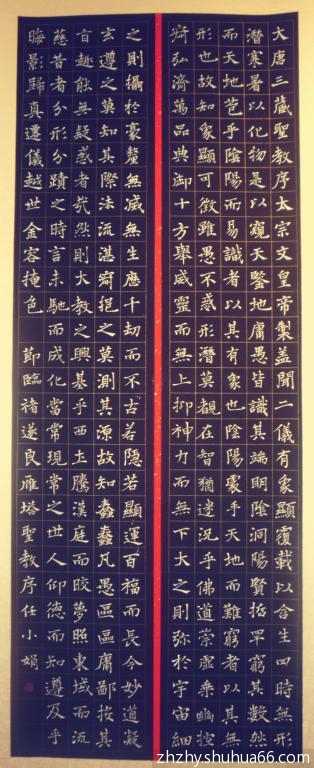 大唐三藏聖教序太宗文皇帝製蓋聞二儀有象顯覆載以含生四時無形
潛寒暑以化物是以窺天鑒地庸愚皆識其端明陰洞陽賢哲罕窮其數然
而天地苞乎陰陽而易識者以其有象也陰陽處乎天地而難窮者以其無
形也故知象顯可徵雖愚不惑形潛莫覩在智猶迷況乎佛道崇虛乘幽控
寂弘濟萬品典御十方舉威靈而無上抑神力而無下大之則彌於宇宙細
之則攝於豪釐無滅無生歷千劫而不古若隱若顯運百福而長今妙道凝
玄遵之莫知其際法流湛寂挹之莫測其源故知蠢蠢凡愚區區庸鄙投其
旨趣能無疑惑者哉然則大教之興基乎西土騰漢庭而皎夢照東域而流
慈昔者分形分蹟之時言未馳而成化當常現常之世人仰德而知遵及乎
晦影歸真遷儀越世金容掩色 節臨褚遂良雁塔聖教序任小娟
zhzhy.shuhua66.com